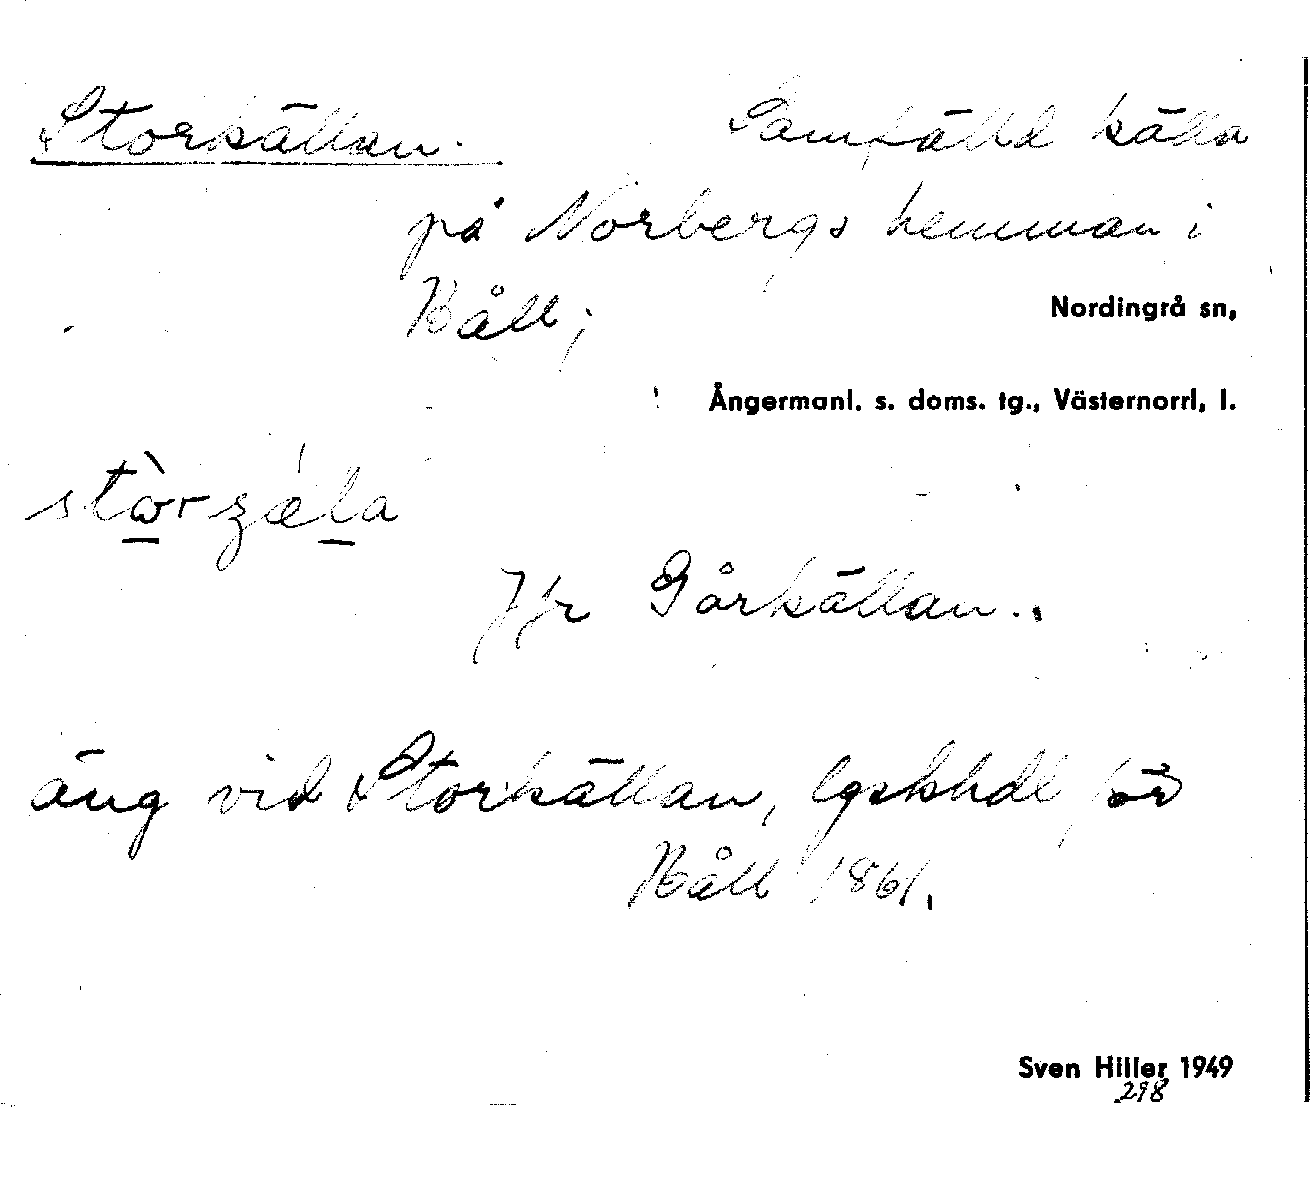 Storkällan. Samfälld källa
på Norbergs hemman i
Håll; Nordingrå sn,
Ångermanl. s. doms. tg., Västernorrl, l.
Jfr Gårkällan.
äng vid Storkällan, lgskhdl för
Håll 1861.
Sven Hiller 1949
298